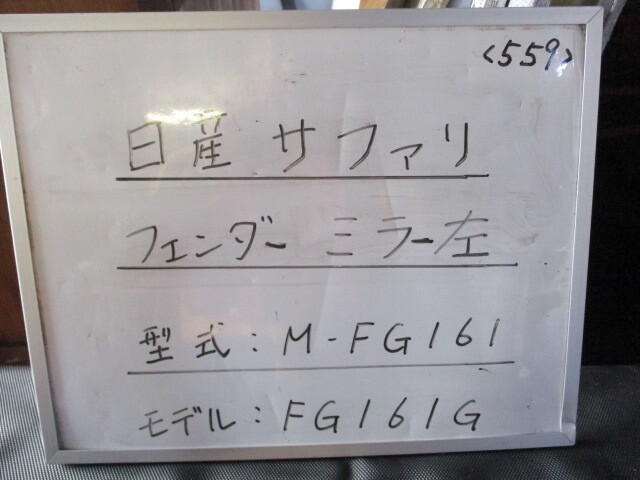 <559>
日産 サファリ
フェンダー ミラー左
型式：M-FG161
モデル：FG161G